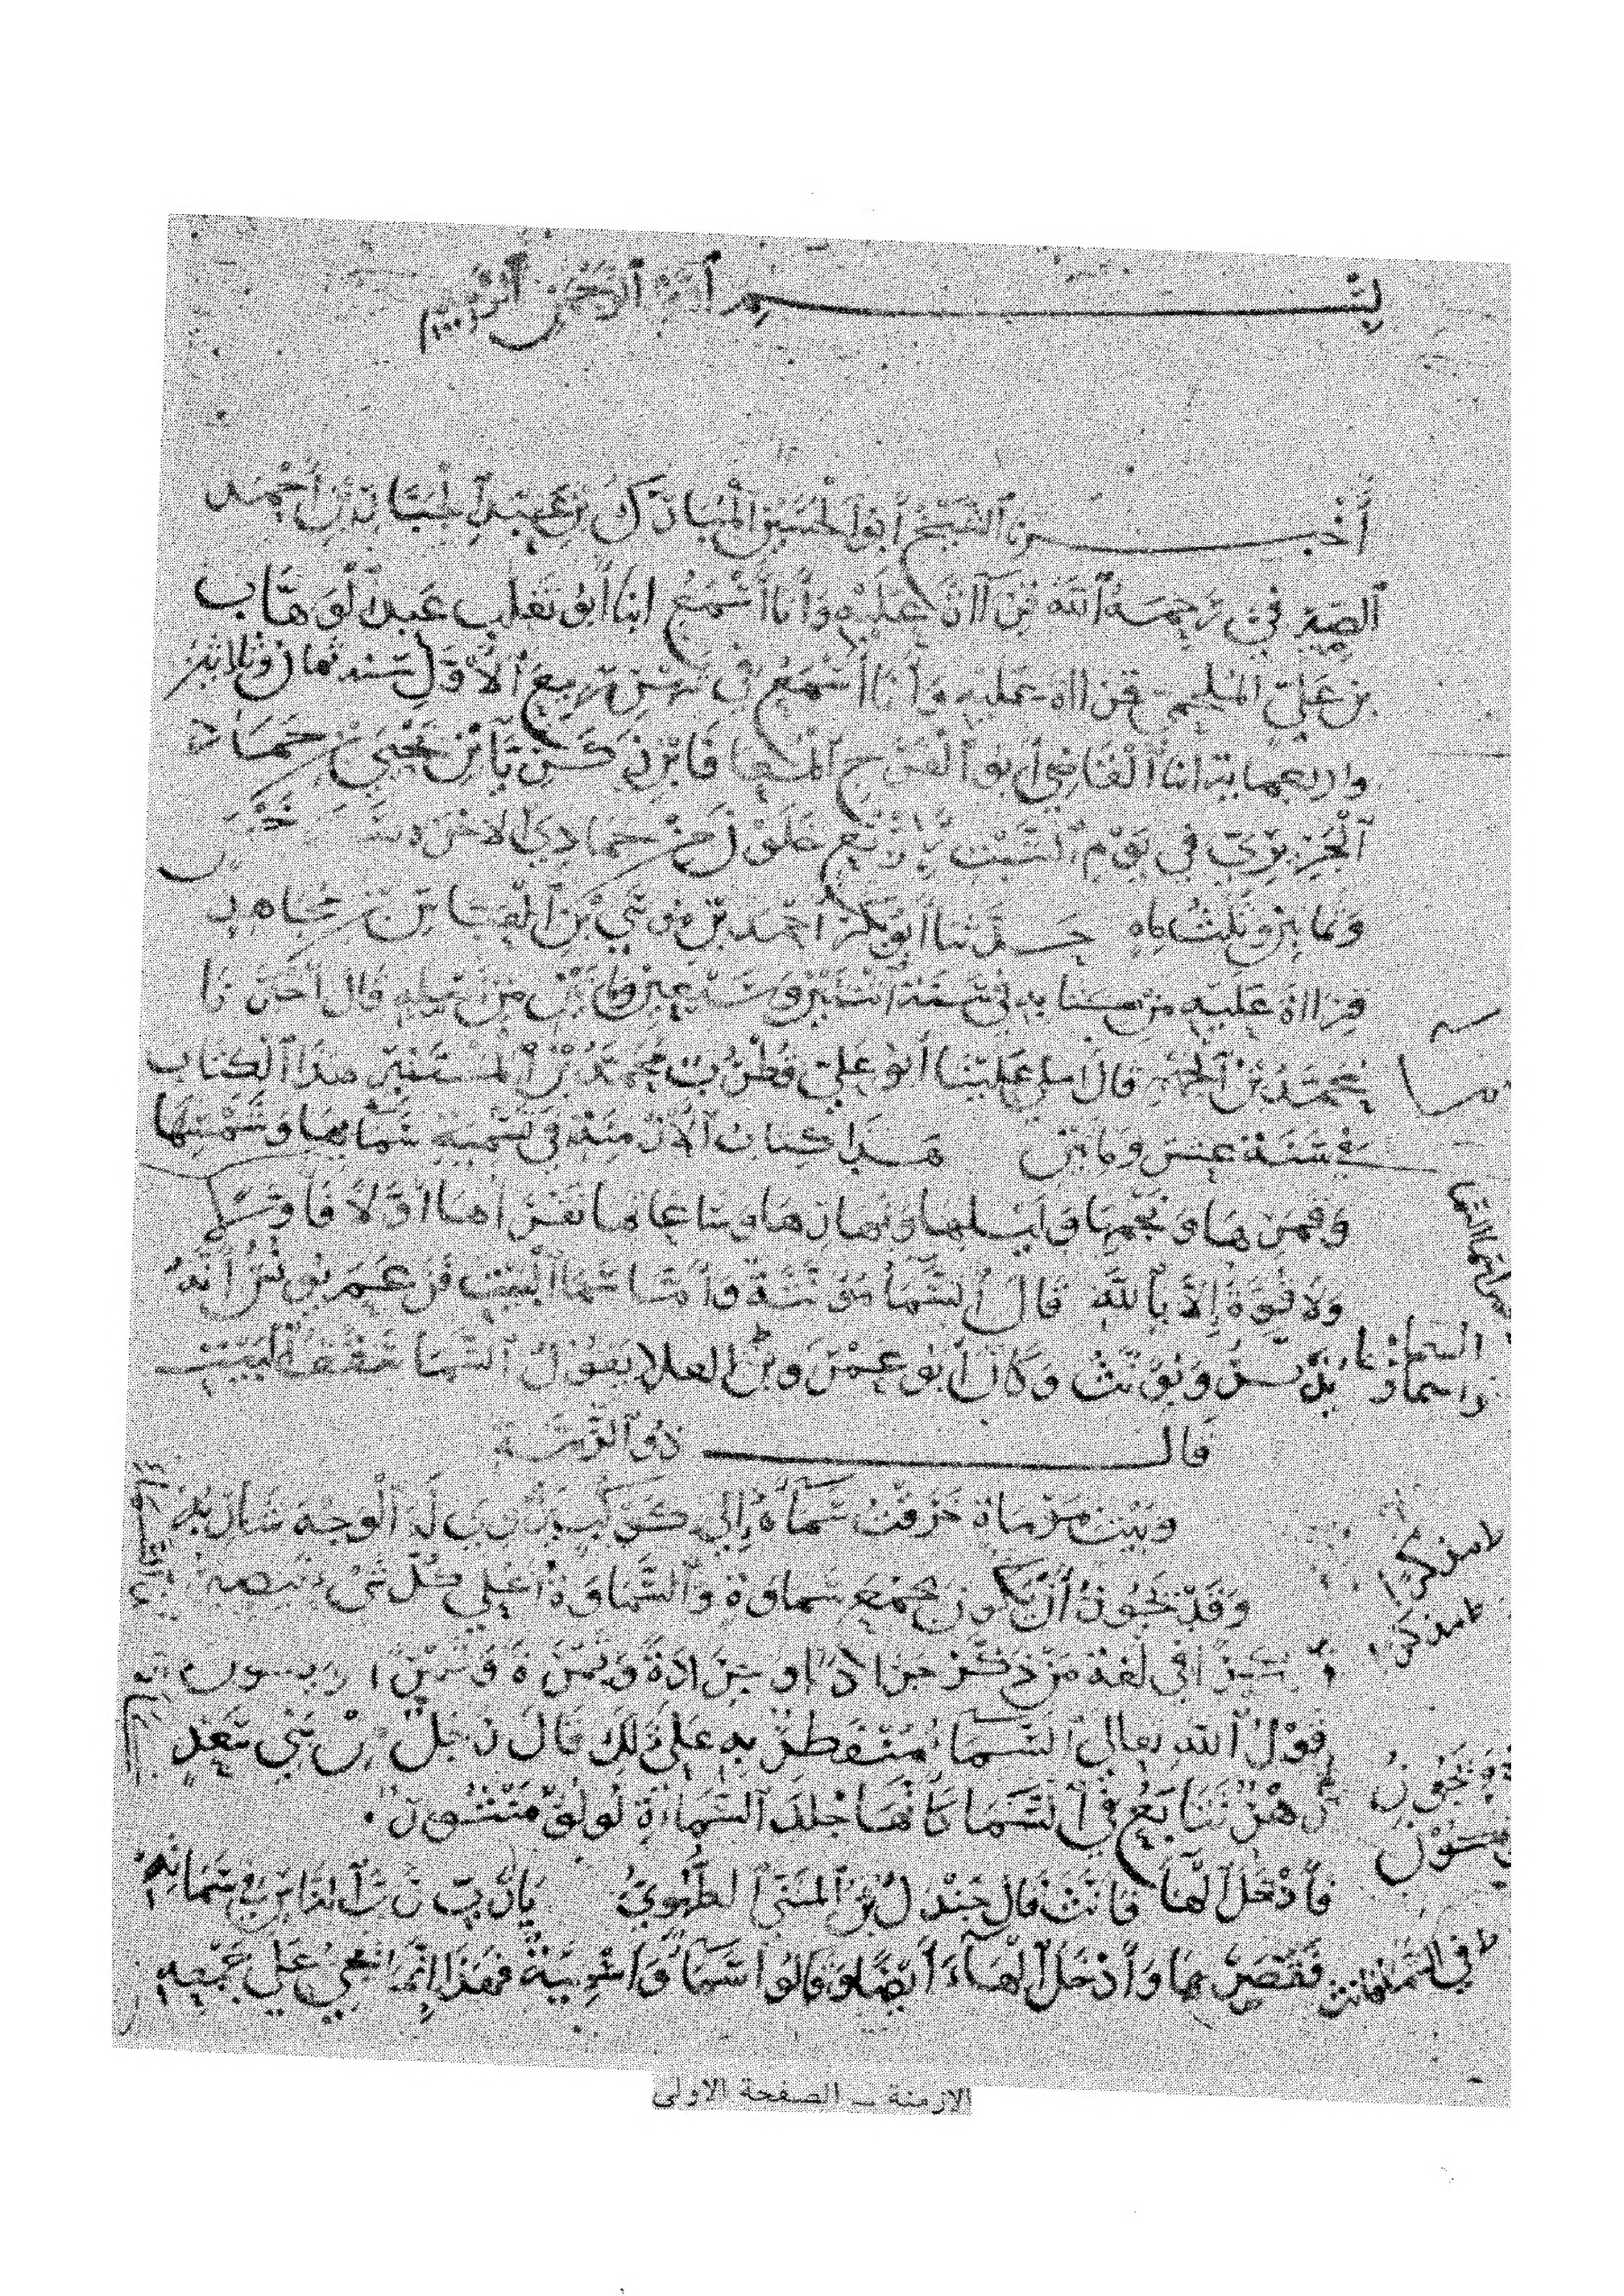 بسم الله الرحمن الرحيم
أخبرنا الشيخ أبو الحسين المبارك بن عبد الجبار بن أحمد
الصيرفي رحمه الله قراأة عليه وأنا أسمع انا أبو تغلب عبد الوهاب
بن علي الملحمي قرااة عليه وأنا أسمع في شهر ربيع الأول سنه ثمان وثلاثين
واربعمايه انا القاضي أبو الفرج المعافا بن زكريا بن يحيى بن حماد
الجريري في يوم السبت لأربع خلون من جمادى الاخره سنة خمس
وثمانين وثلثمايه حدثنا أبو بكر أحمد بن موسي بن العباس بن مجاهد
قرااة عليه من كتابه في سنة اثنتين وستين ومايتين من أصله قال أخبرنا
محمد بن الجهم قال املي علينا أبو علي قطرب محمد بن المستنير هذا الكتاب
في سنة عشر ومايتين هذا كتاب الأزمنة في تسمية سمايها وشمسها
وقمرها ونجمها وليلها ونهارها وساعاتها نقراها أولا فأولا
ولا قوة إلا بالله قال السما مؤنثة وأما سما البيت فزعم يونس أنه
يذكر ويؤنث وكان أبو عمرو بن العلا يقول السما سقف البيت
قال ذو الرمة
وبيت بموماة خرقت سماءه إلى كوكب يزوي له الوجه شاربه
وقد يجوز أن يكون جمع سماوة والسماوة أعلي كل شيء
في لغة من ذكر جرادا وجرادة وتمرة وتمرا
قول الله تعالى السماء منفطر به على ذلك قال رجل من بني سعد
زهر تتابع في السما كأنها جلد السماءة لولو منثور
فأدخل الها فأنث قال جندل بن المثنى الطهوي يا رب رب الناس في سماته
فقصرها وأدخل الهاء أيضا وقالوا سما وأسمية فهذا إنما يجي علي جمعه
السما
واسما
ويجوز
الازمنة ــ الصفحة الاولى